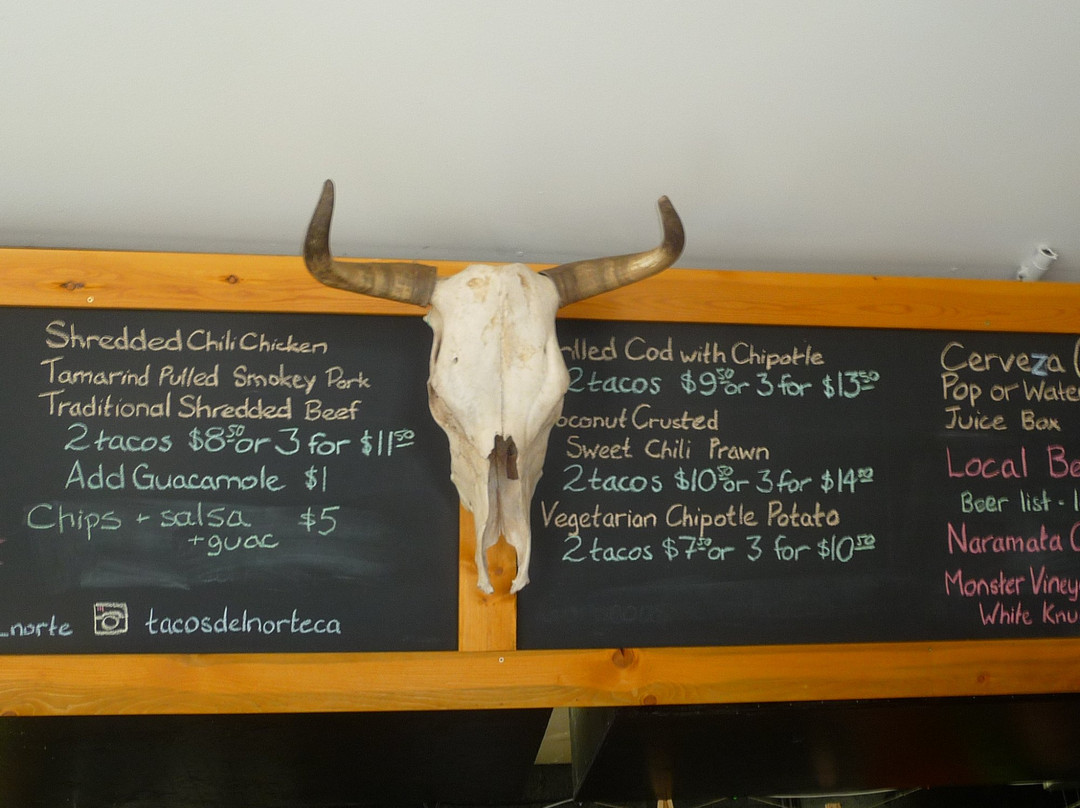 Shredded Chili Chicken
Tamarind Pulled Smokey Pork
Traditional Shredded Beef
2 tacos $8.50 or 3 for $11.50
Add Guacamole $1
Chips + salsa $5
+guac
_norte
tacosdelnorteca
Cod with Chipotle
2 tacos $9.50 or 3 for $13.50
Crusted
Sweet Chili Prawn
2 tacos $10.50 or 3 for $14.50
Vegetarian Chipotle Potato
2 tacos $7.50 or 3 for $10.50
Cerveza
Pop or Water
Juice Box
Local
Beer list -
Naramata
Monster
White